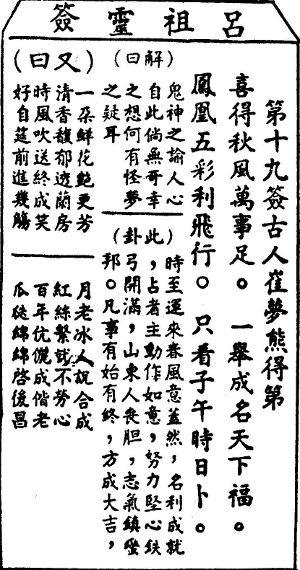 呂祖靈簽
第十九簽古人崔夢熊得第
喜得秋風萬事足。一舉成名天下福。
鳳凰五彩利飛行。只看子午時日卜。
(解曰)
鬼神之諭人心
自此倘無哥幸
之想何有怪夢
之疑耳
(此卦)
時至運來春風意盖然,名利成就
,占者主動作如意,努力堅心鉄
弓開滿,山東人喪胆,志氣鎮蠻
邦。凡事有始有終,方成大吉,
(又曰)
一朶鮮花艶更芳
清香馥郁透蘭房
時風吹送終成笑
好自筵前進幾觴
月老冰人説合成
紅絲繫就不勞心
百年伉儷成偕老
瓜瓞綿綿啓後昌